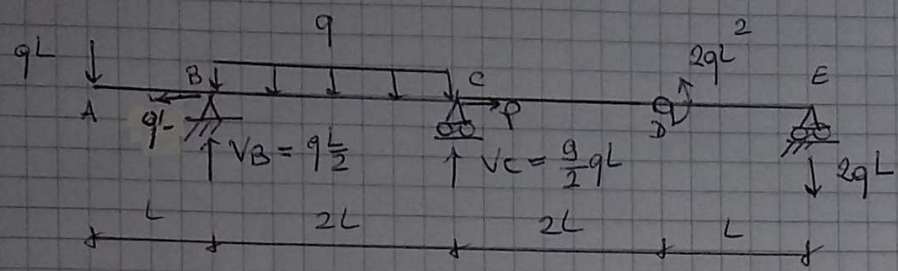 q
qL
2qL²
A
B
C
D
E
qL
P
VB = qL/2
VC = 9/2 qL
2qL
L
2L
2L
L